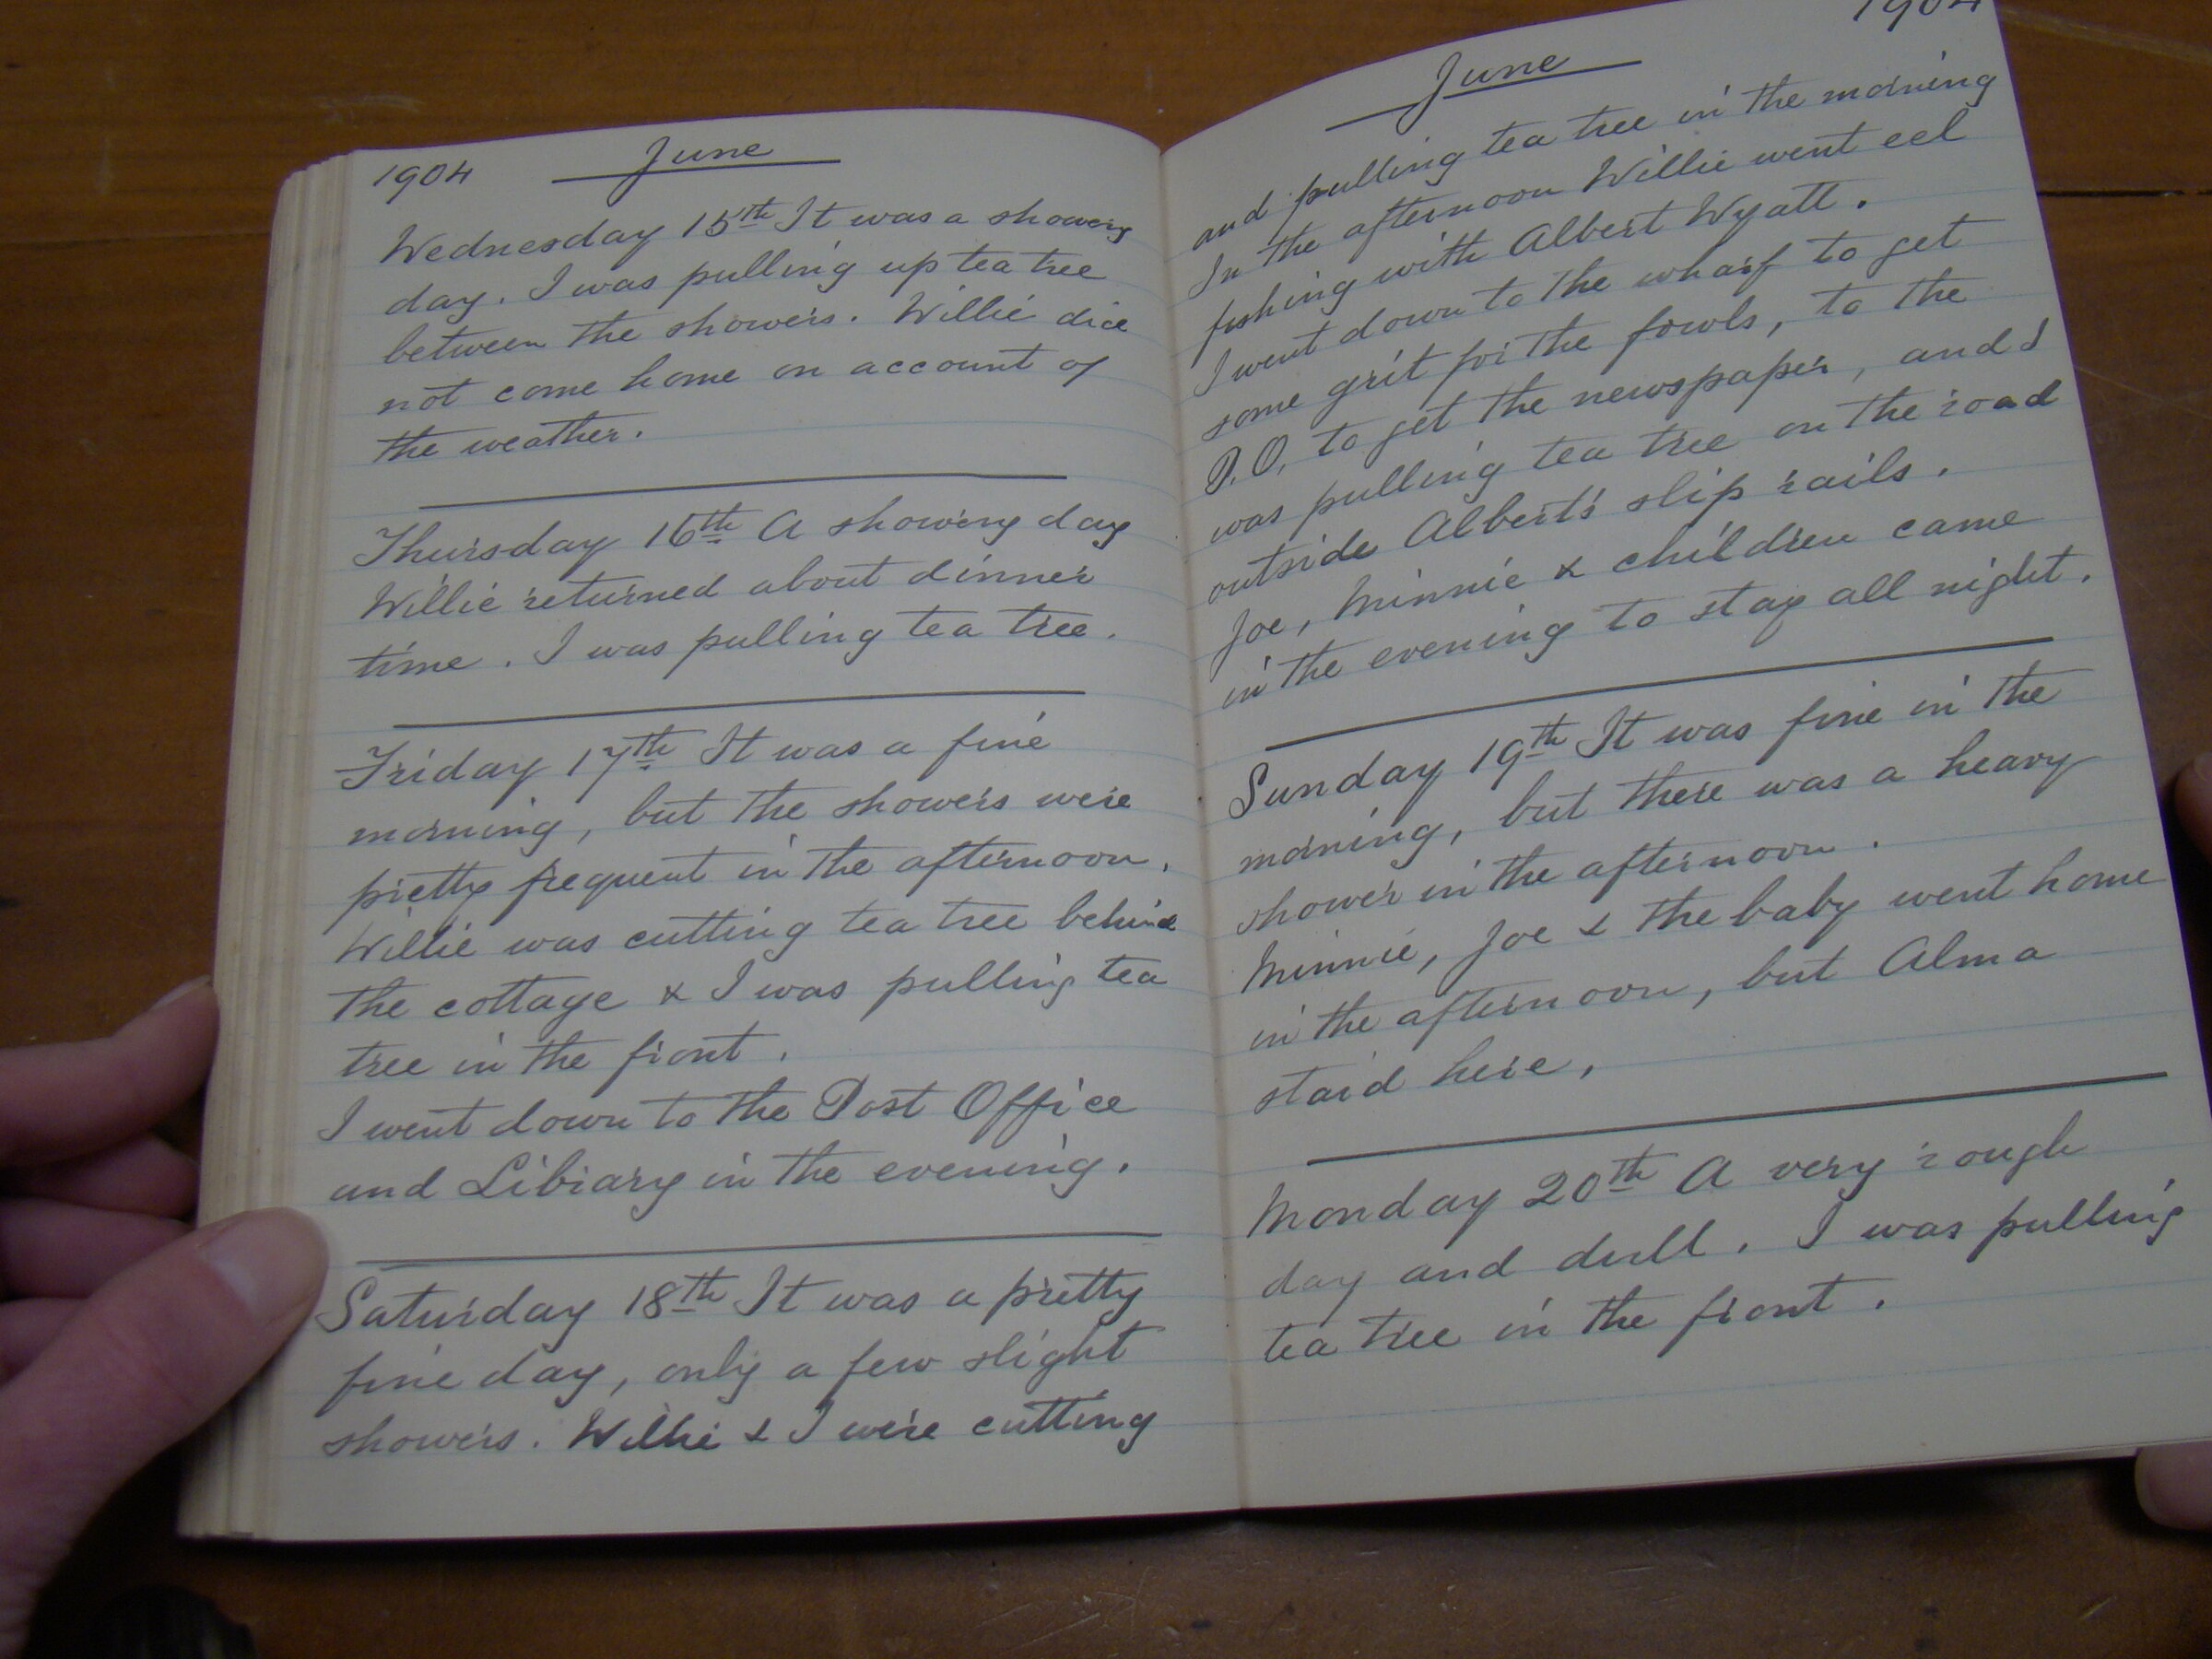 1904 June
Wednesday 15th It was a showery
day. I was pulling up tea tree
between the showers. Willie did
not come home on account of
the weather.
Thursday 16th A showery day
Willie returned about dinner
time. I was pulling tea tree.
Friday 17th It was a fine
morning, but the showers were
pretty frequent in the afternoon.
Willie was cutting tea tree behind
the cottage & I was pulling tea
tree in the front.
I went down to the Post Office
and Library in the evening.
Saturday 18th It was a pretty
fine day, only a few slight
showers. Willie & I were cutting
June 1904
and pulling tea tree in the morning
In the afternoon Willie went eel
fishing with Albert Wyatt.
I went down to the wharf to get
some grit for the fowls, to the
P.O. to get the newspaper, and I
was pulling tea tree on the road
outside Albert's slip rails.
Joe, Minnie & children came
in the evening to stay all night.
Sunday 19th It was fine in the
morning, but there was a heavy
shower in the afternoon.
Minnie, Joe & the baby went home
in the afternoon, but Alma
staid here.
Monday 20th A very rough
day and dull. I was pulling
tea tree in the front.